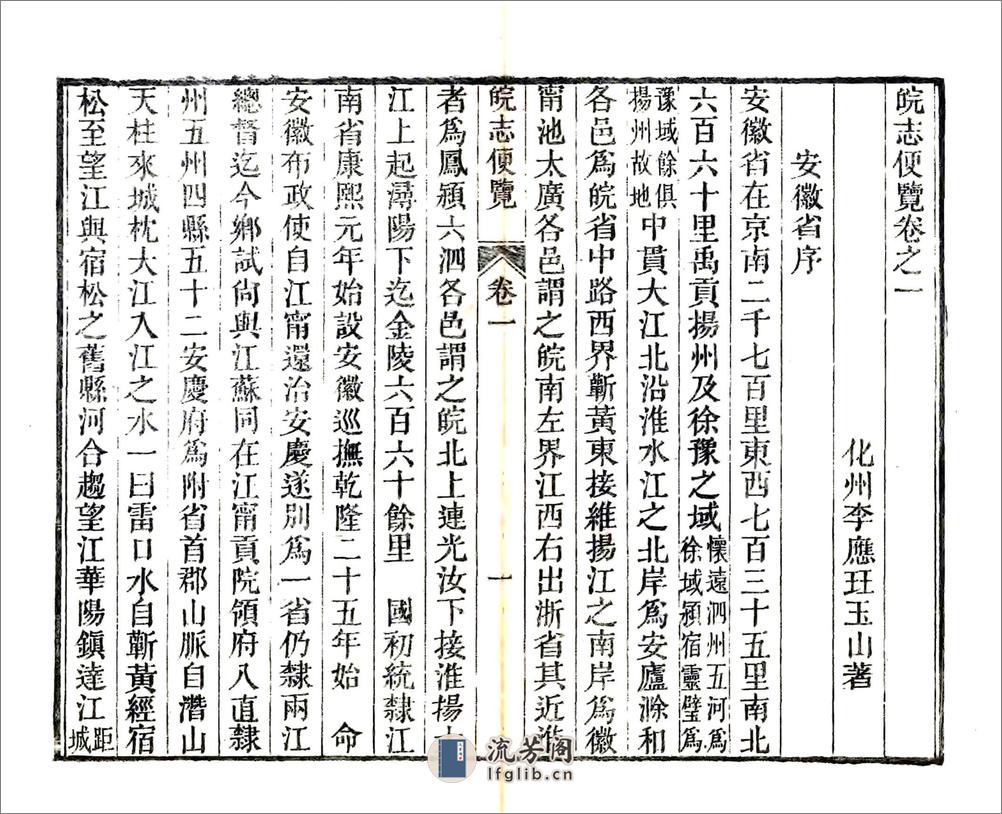 皖志便覽卷之一
化州李應珏玉山著
安徽省序
安徽省在京南二千七百里東西七百三十五里南北
六百六十里禹貢揚州及徐豫之域懷遠泗州五河爲徐域潁宿靈璧爲
豫域餘俱揚州故地中貫大江北沿淮水江之北岸爲安廬滁和
各邑爲皖省中路西界蘄黃東接維揚江之南岸爲徽
甯池太廣各邑謂之皖南左界江西右出浙省其近淮
皖志便覽 卷一 一
者爲鳳潁六泗各邑謂之皖北上連光汝下接淮揚
江上起潯陽下迄金陵六百六十餘里 國初統隸江
南省康熙元年始設安徽巡撫乾隆二十五年始 命
安徽布政使自江甯還治安慶遂別爲一省仍隸兩江
總督迄今鄉試尙與江蘇同在江甯貢院領府八直隸
州五州四縣五十二安慶府爲附省首郡山脈自潛山
天柱來城枕大江入江之水一曰雷口水自蘄黃經宿
松至望江與宿松之舊縣河合趨望江華陽鎮達江距城
流芳閣
lfglib.cn